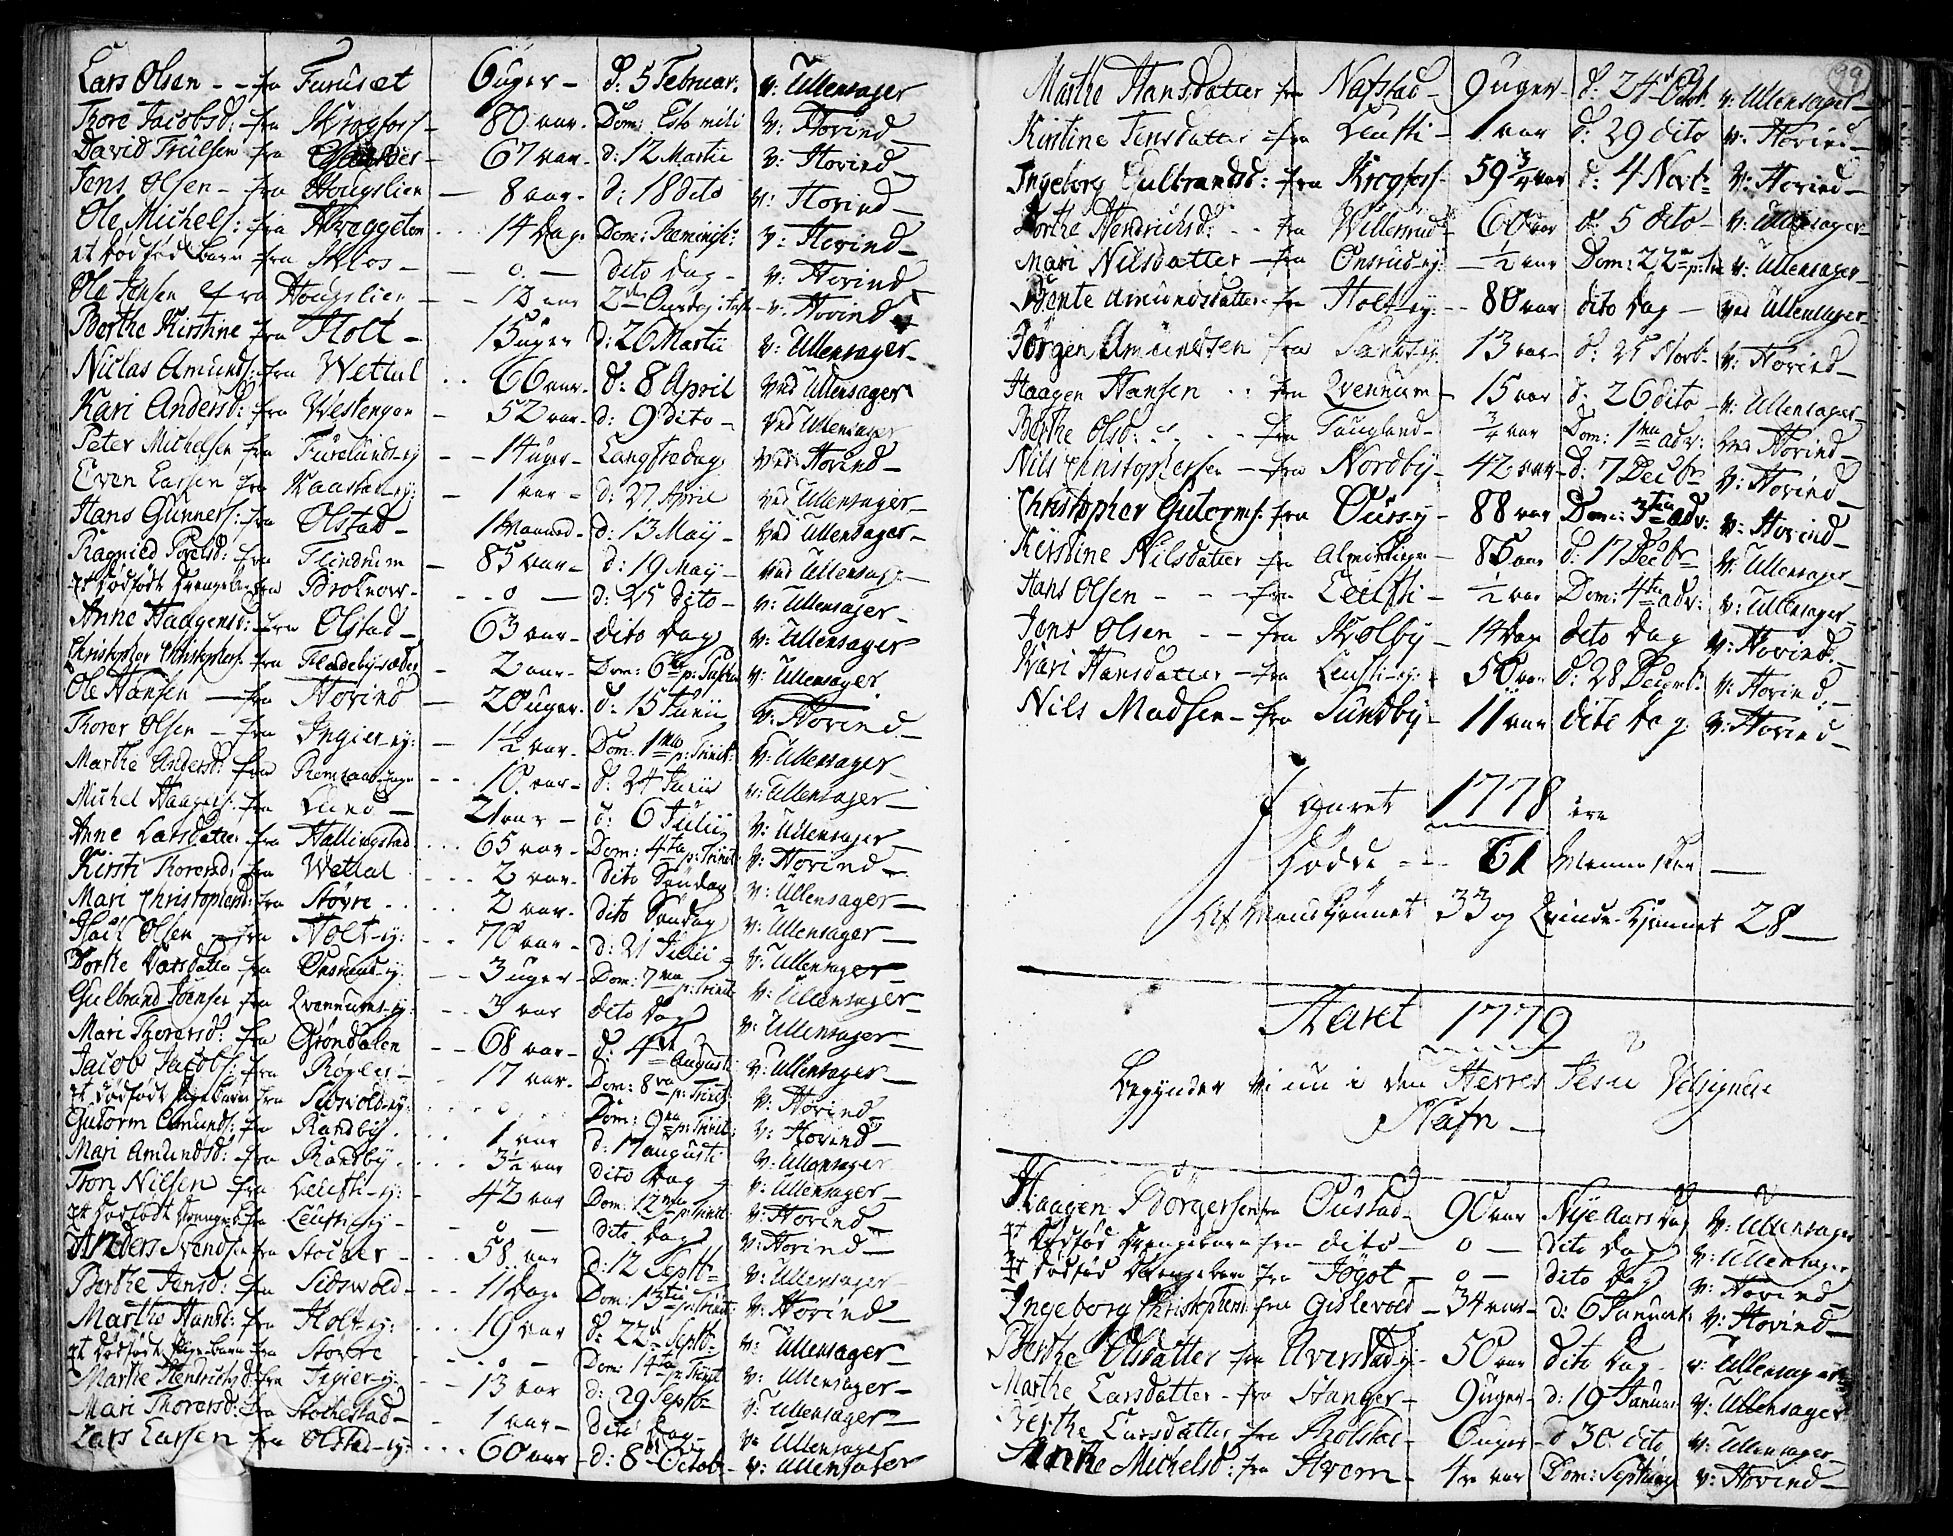 Lars Olsen - - fra Furusæt 6 uger - d: 5 Februar. v: Ullensager
Thore Jacobsd: fra Krogfoss - 80 aar - Dom: Esto mihi v: Hovind
David Truelsen fra 67 aar - d: 12 Martii v: Hovind
Jens Olsen - fra Hougslien - 8 aar - d: 18 dito v: Hovind
Ole Michels: fra Kraggetom 14 Dage Dom: Reminisc: v: Hovind
et dødfød barn fra Kløs - 0 - dito Dag - v: Hovind
Ole Jensen fra Hougslien - 18 aar 2den v: Hovind
Berthe Kirstine fra Holt - 15 uger d: 26 Martii v: Ullensager
Niclas Amunds: fra Wettal 66 aar - d: 8 April ved Ullensager
Kari Andersd: fra Westengen - 52 aar - d: 9 dito - ved Ullensager
Peter Michelsen fra Furulund-ey - 14 uger - Langfredag ved Hovind
Even Larsen fra Kaastad-ey: - 1 aar - d: 27 April ved Ullensager
Hans Gunners: fra Olstad - 1 Maaned - d: 13 May - ved Ullensager
Ragnild Povelsd: fra Flindrum - 85 aar - d: 19 May - ved Ullensager
et dødfødt Drengebarn fra Brotnov - 0 - d: 25 dito - v: Ullensager
Anne Haagensd: fra Olstad - 63 aar - dito Dag v: Ullensager
Christopher Christophers: fra Fladebysæder - 2 aar - Dom: 6ta p: Pascha v: Ullensager
Ole Hansen - fra Hovind - 20 uger - d: 15 Junii v: Hovind
Thorer Olsen - fra Ingier-ey: - 1½ aar - Dom: 1ma p: Trinit: v: Ullensager
Marthe Andersd: fra 10 aar - d: 24 Junii v: Ullensager
Michel Haagens: fra Lund - 21 aar - d: 6 Julii v: Ullensager
Anne Larsdatter fra Hallingstad 65 aar - Dom: 4ta p: Trinit: v: Hovind
Kirsti Thorersd: fra Wettal 2 aar - dito Søndag v: Ullensager
Mari Christophersd: fra Støvre 2 aar - dito Søndag v: Ullensager
Olsen fra Holt-ey: 70 aar - d: 21 Julii v: Ullensager
Dorthe Larsdatter fra Onsrud-ey: - 3 uger - Dom: 7ma p: Trinit: v: Ullensager
Gulbrand Joensen fra Qvennums-ey: - 3 aar dito Dag v: Ullensager
Mari Thorersd: fra Grøndalen - 68 aar - d: 4de Augusti v: Ullensager
Jacob Jacobs: fra Røgler - 17 aar - Dom: 8va p: Trinit: v: Hovind
et dødfødt Pigebarn fra Sidsvold-ey: 0 Dom: 9na p: Trinit: v: Hovind
Gutorm Amunds: fra Randby 1 aar d: 17 Augusti v: Ullensager
Mari Amundsd: fra Randby 3½ aar dito Dag v: Ullensager
Tron Nilsen fra Leufsti-ey: 42 aar Dom: 12ma p: Trinit: v: Hovind
et dødfødt Drengeb: fra Leufsti-ey - 0 - dito Dag v: Hovind
Anders Svendsen fra Stocker - 58 aar d: 12 Septbr v: Ullensager
Berthe Jensd: fra Sidsvold - 11 Dage Dom: 13tia p: Trinit: v: Hovind
Marthe Hansd: fra Holt-ey: 19 aar d: 22d Septb: v: Ullensager
et dødfødt Pigebarn fra Støvre 0 - Dom: 14ta p: Trinit v: Ullensager
Marthe Hendrichsd: fra Ingier-ey: 13 aar d: 29 Septbr v: Ullensager
Mari Thorersd: fra Stochestad - 1 aar - dito Dag v: Ullensager
Lars Larsen fra Olstad-ey: 60 aar - d: 8de Octob: v: Ullensager
99
Marthe Hansdatter fra Nafstad - 9 uger - d: 24d Octobr. v: Ullensager
Kirstine Jensdatter fra Leufsti - 1 aar d: 29 dito v: Hovind
Ingeborg Gulbrandsd: fra Krogfoss - 59 3/4 aar d: 4 Novbr v: Hovind
Dorthe Hendrichsd: - fra Willerud 60 aar d: 5 dito - v: Ullensager
Mari Nilsdatter - fra Onsrud-ey: - ½ aar Dom: 22n p: Tri v: Ullensager
Bente Amundsdatter fra Holt-ey: - 80 aar dito Dag - ved Ullensager
Jørgen Amundsen fra Sand-ey 13 aar - d: 25 Novb: v: Hovind
Haagen Hansen - fra Qvennum - 15 aar d: 26 dito v: Ullensager
Berthe Olsd: - fra Taugland - 3/4 aar Dom: 1ma adv: ved Hovind
Nils Christophersen - fra Nordby - 42 aar - d: 7 Decbr v: Hovind
Christopher Gutorms: fra Ousey - 88 aar Dom: 3tia adv: v: Hovind
Kirstine Nilsdatter fra 85 aar d: 17 Decbr v: Ullensager
Hans Olsen - - fra Leufsti - ½ aar Dom: 4ta adv: v: Ullensager
Jens Olsen - - fra Kolby - 14 Dage dito Dag v: Hovind
Kari Hansdatter - fra Leufsti-ey: 50 aar d: 28 Decemb: v: Hovind
Nils Madsen - fra Sundby - 11 aar dito Dag v: Hovind
I aaret 1778 ere
Døde - - 61 Mennesker
Af Mandkiønnet 33 og Qvinde-Kiønnet 28
Aaret 1779
Begynder vi nu i den Herres Jesu Velsignede
Nafn
Haagen Børgersen fra Oustad - 90 aar Nye Aars Dag v: Ullensager
et Dødfød Drengebarn fra dito - 0 - dito Dag v: Ullensager
et dødfød Drengebarn fra Jogot - 0 - dito Dag v: Hovind
Ingeborg Christophersd: fra Gislevold - 34 aar - d: 6 Januar: v: Hovind
Berthe Olsdatter fra Averstad-ey - 50 aar dito Dag - v: Ullensager
Marthe Larsdatter - fra Hanger - 9 uger - d: 19 Januar v: Ullensager
Berthe Larsdatter fra Rolstad - 6 uger - d 30 dito v: Ullensager
Anne Michelsd: fra Hvem - 4re aar Dom: Septuag v: Hovind